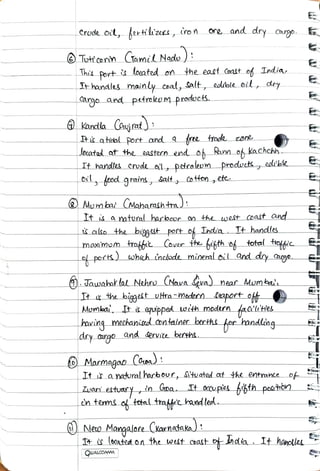 crude oil, fertilizers, iron ore and dry cargo.
⑥ Tuticorin (Tamil Nadu):
This port is located on the east coast of India.
It handles mainly coal, salt, edible oil, dry
cargo and petroleum products.
⑦ Kandla (Gujrat):
It is a tidal port and a free trade zone
located at the eastern end of Runn of Kachchh.
It handles crude oil, petroleum products, edible
oil, food grains, salt, cotton, etc.
⑧ Mumbai (Maharashtra):
It is a natural harbour on the west coast and
is also the biggest port of India. It handles
maximum traffic (over the fifth of total traffic
of ports) which include mineral oil and dry cargo.
⑨. Jawaharlal Nehru (Nava Seva) near Mumbai.
It is the biggest ultra-modern seaport off
Mumbai. It is equipped with modern facilities
having mechanised container berths for handling
dry cargo and service berths.
⑩ Marmagao (Goa):
It is a natural harbour, situated at the entrance of
Zuari estuary, in Goa. It occupies fifth position
in terms of total traffic handled.
⑪ New Mangalore (Karnataka):
It is located on the west coast of India. It handles
QUALCOMM